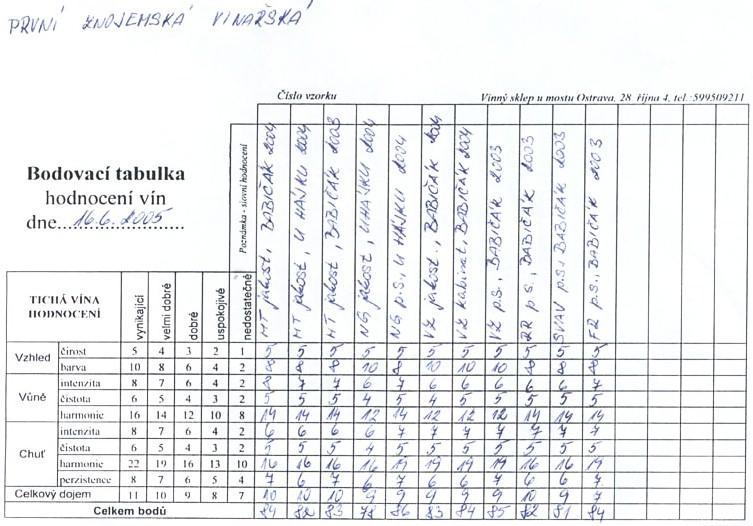 PRVNÍ ZNOJEMSKÁ VINAŘSKÁ
Číslo vzorku
Vinný sklep u mostu Ostrava, 28. října 4, tel.:599509211
Bodovací tabulka
hodnocení vín
dne....16.6.2005....
Poznámka - slovní hodnocení
MT jakost, BABIČÁK 2004
MT jakost, U HÁJKU 2004
MT jakost, BABIČÁK 2003
NG jakost, U HÁJKU 2004
NG p.s., U HÁJKU 2004
VZ jakost, BABIČÁK 2004
VZ kabinet, BABIČÁK 2004
VZ p.s., BABIČÁK 2003
RR p.s., BABIČÁK 2003
SVAV p.s., BABIČÁK 2003
FR p.s., BABIČÁK 2003
TICHÁ VÍNA HODNOCENÍ vynikající velmi dobré dobré uspokojivé nedostatečné
Vzhled čirost 5 4 3 2 1 5 5 5 5 5 5 5 5 5 5 5
barva 10 8 6 4 2 8 8 8 10 8 10 10 10 8 8 8
Vůně intenzita 8 7 6 4 2 8 7 7 6 7 6 6 6 6 6 7
čistota 6 5 4 3 2 5 5 5 4 5 4 5 5 5 5 5
harmonie 16 14 12 10 8 14 14 14 12 14 12 12 12 14 14 14
Chuť intenzita 8 7 6 4 2 6 6 6 6 7 7 7 7 7 7 7
čistota 6 5 4 3 2 5 5 5 4 5 5 5 5 5 5 5
harmonie 22 19 16 13 10 16 16 16 16 19 19 19 19 16 16 19
perzistence 8 7 6 5 4 7 6 7 6 7 6 6 7 6 6 7
Celkový dojem 11 10 9 8 7 10 10 10 9 9 9 9 9 10 9 7
Celkem bodů 84 82 83 78 86 83 84 85 82 81 84